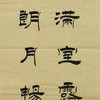 满室露
朗月畅